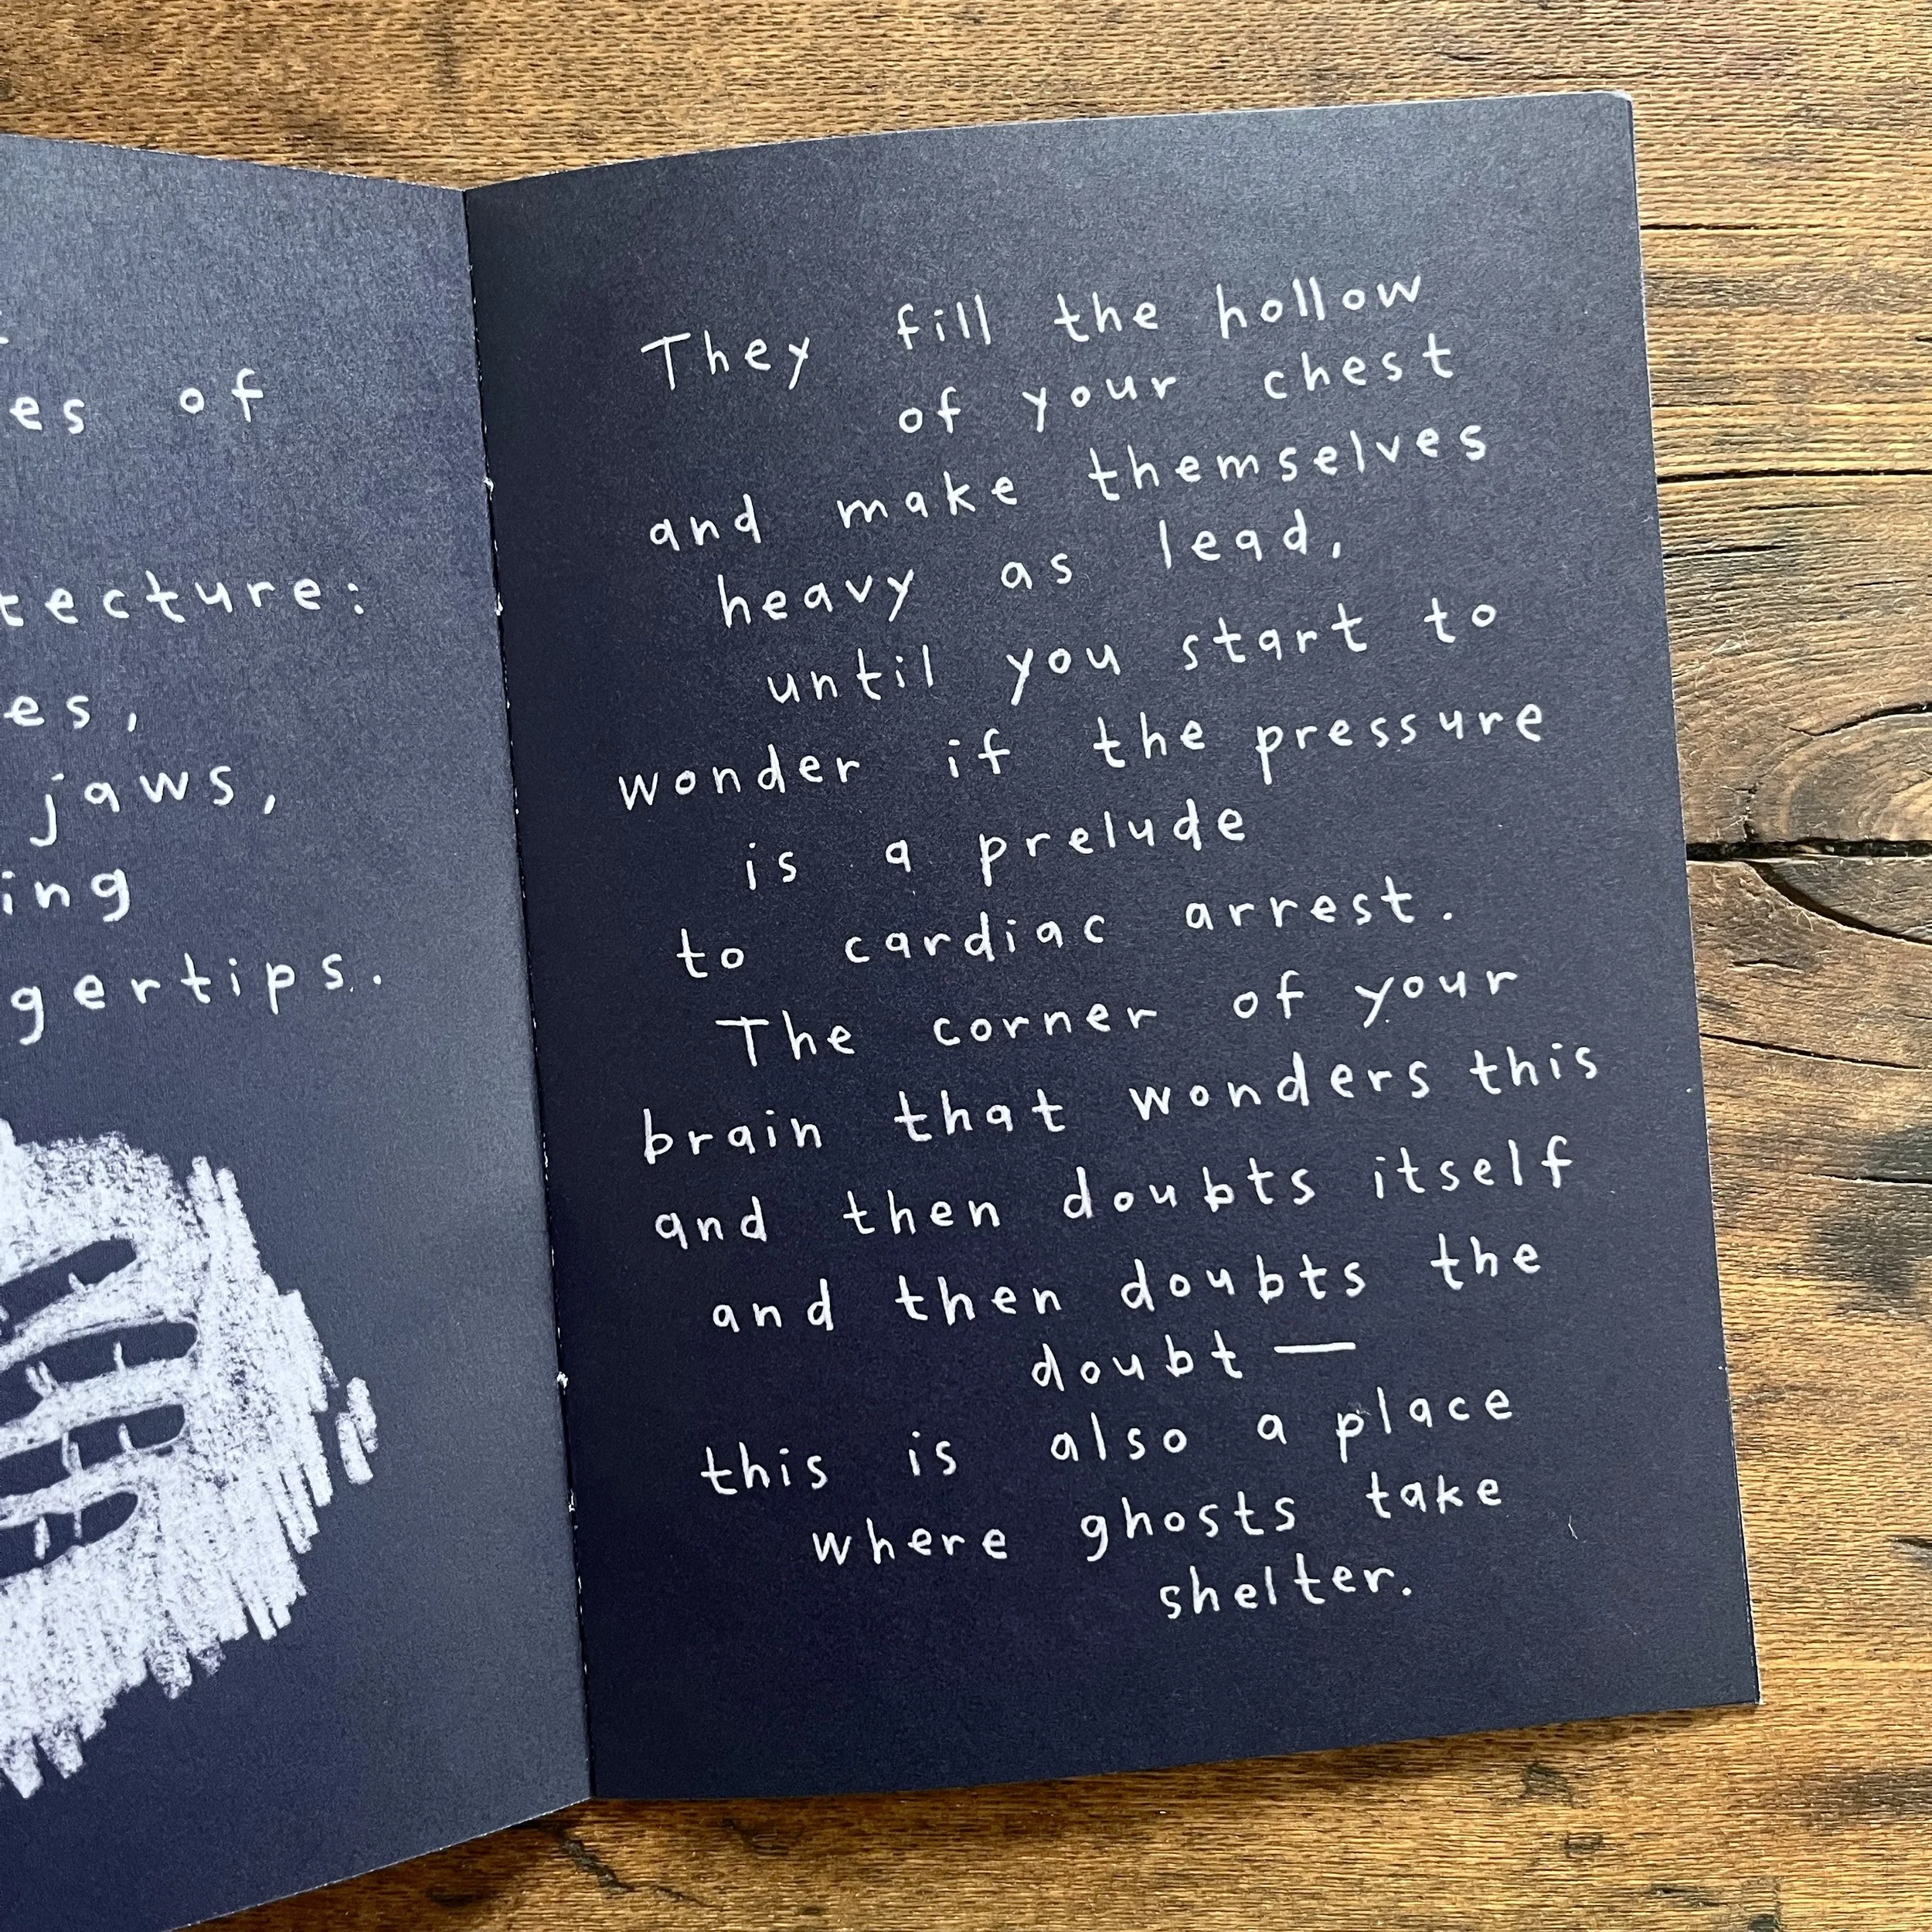 of
jaws,
They fill the hollow
of your chest
and make themselves
heavy as lead,
until you start to
wonder if the pressure
is a prelude
to cardiac arrest.
The corner of your
brain that wonders this
and then doubts itself
and then doubts the
doubt —
this is also a place
where ghosts take
shelter.